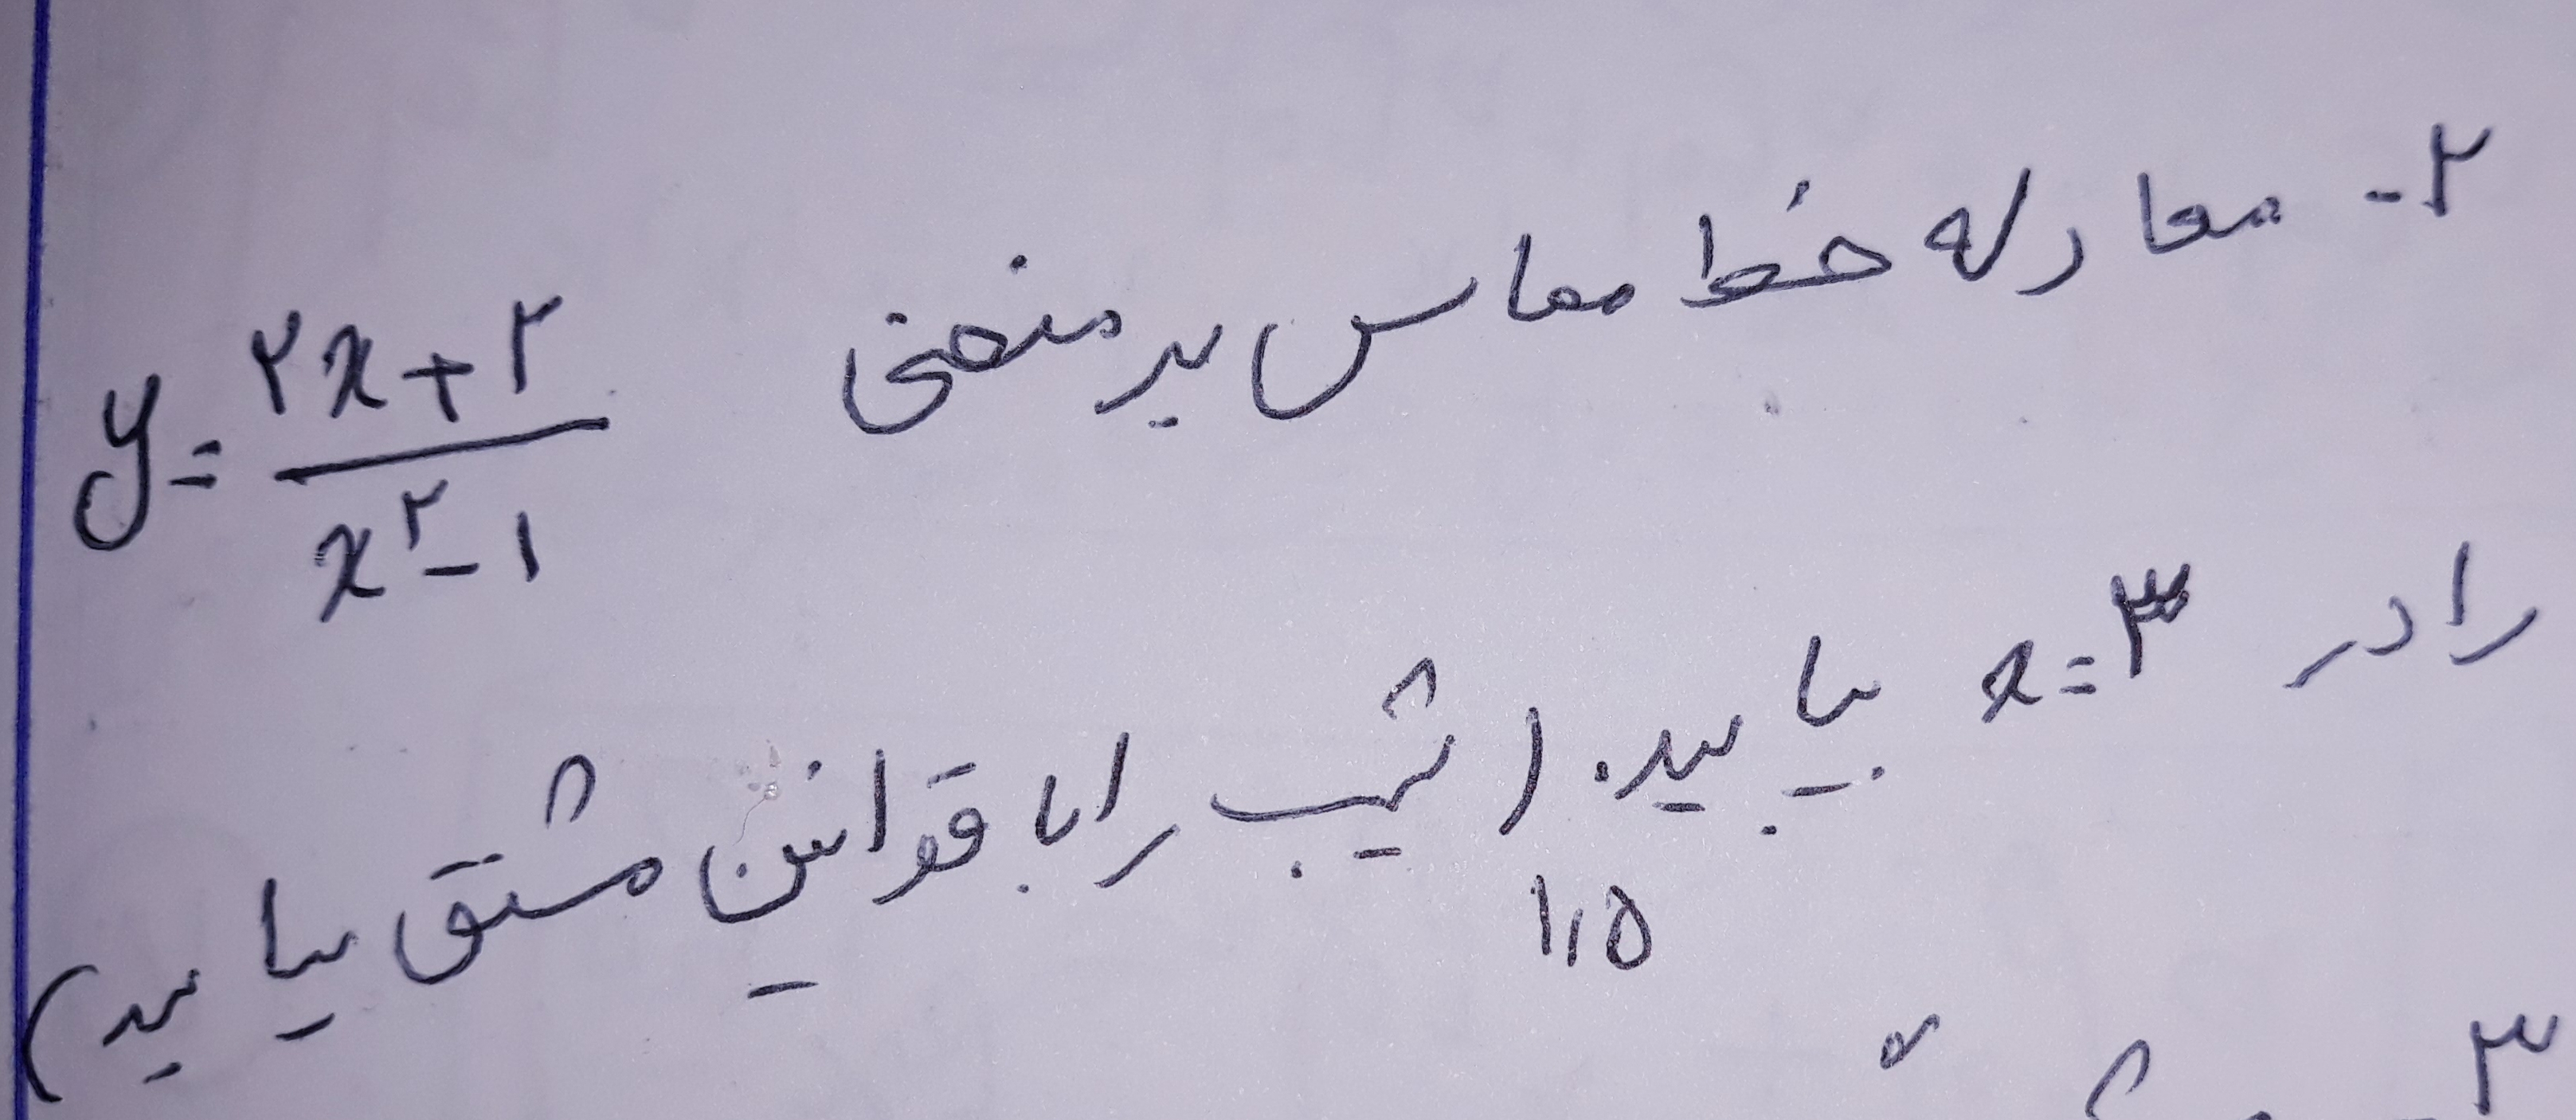 ۲- معادله خط مماس بر منحنی y = (۲x+۲)/(x^۲-۱)
را در x=۳ بیابید. (شیب را با قوانین مشتق بیابید)
۱,۵
۳-